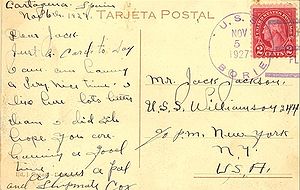 Cartagena, Spain
Nov 6th 1927.
TARJETA POSTAL
Dear Jack
Just a Card to Say
I am having
a Very nice time
I like here lots better
than I did
hope you are
having a good
time
as ever a pal
and Shipmate Cox
U.S.S.
NOV
5
1927
BORIE
2 CENTS 2
Mr. Jack Jackson.
U.S.S. Williamson 244
c/o pm. New York
N.Y.
U.S.A.